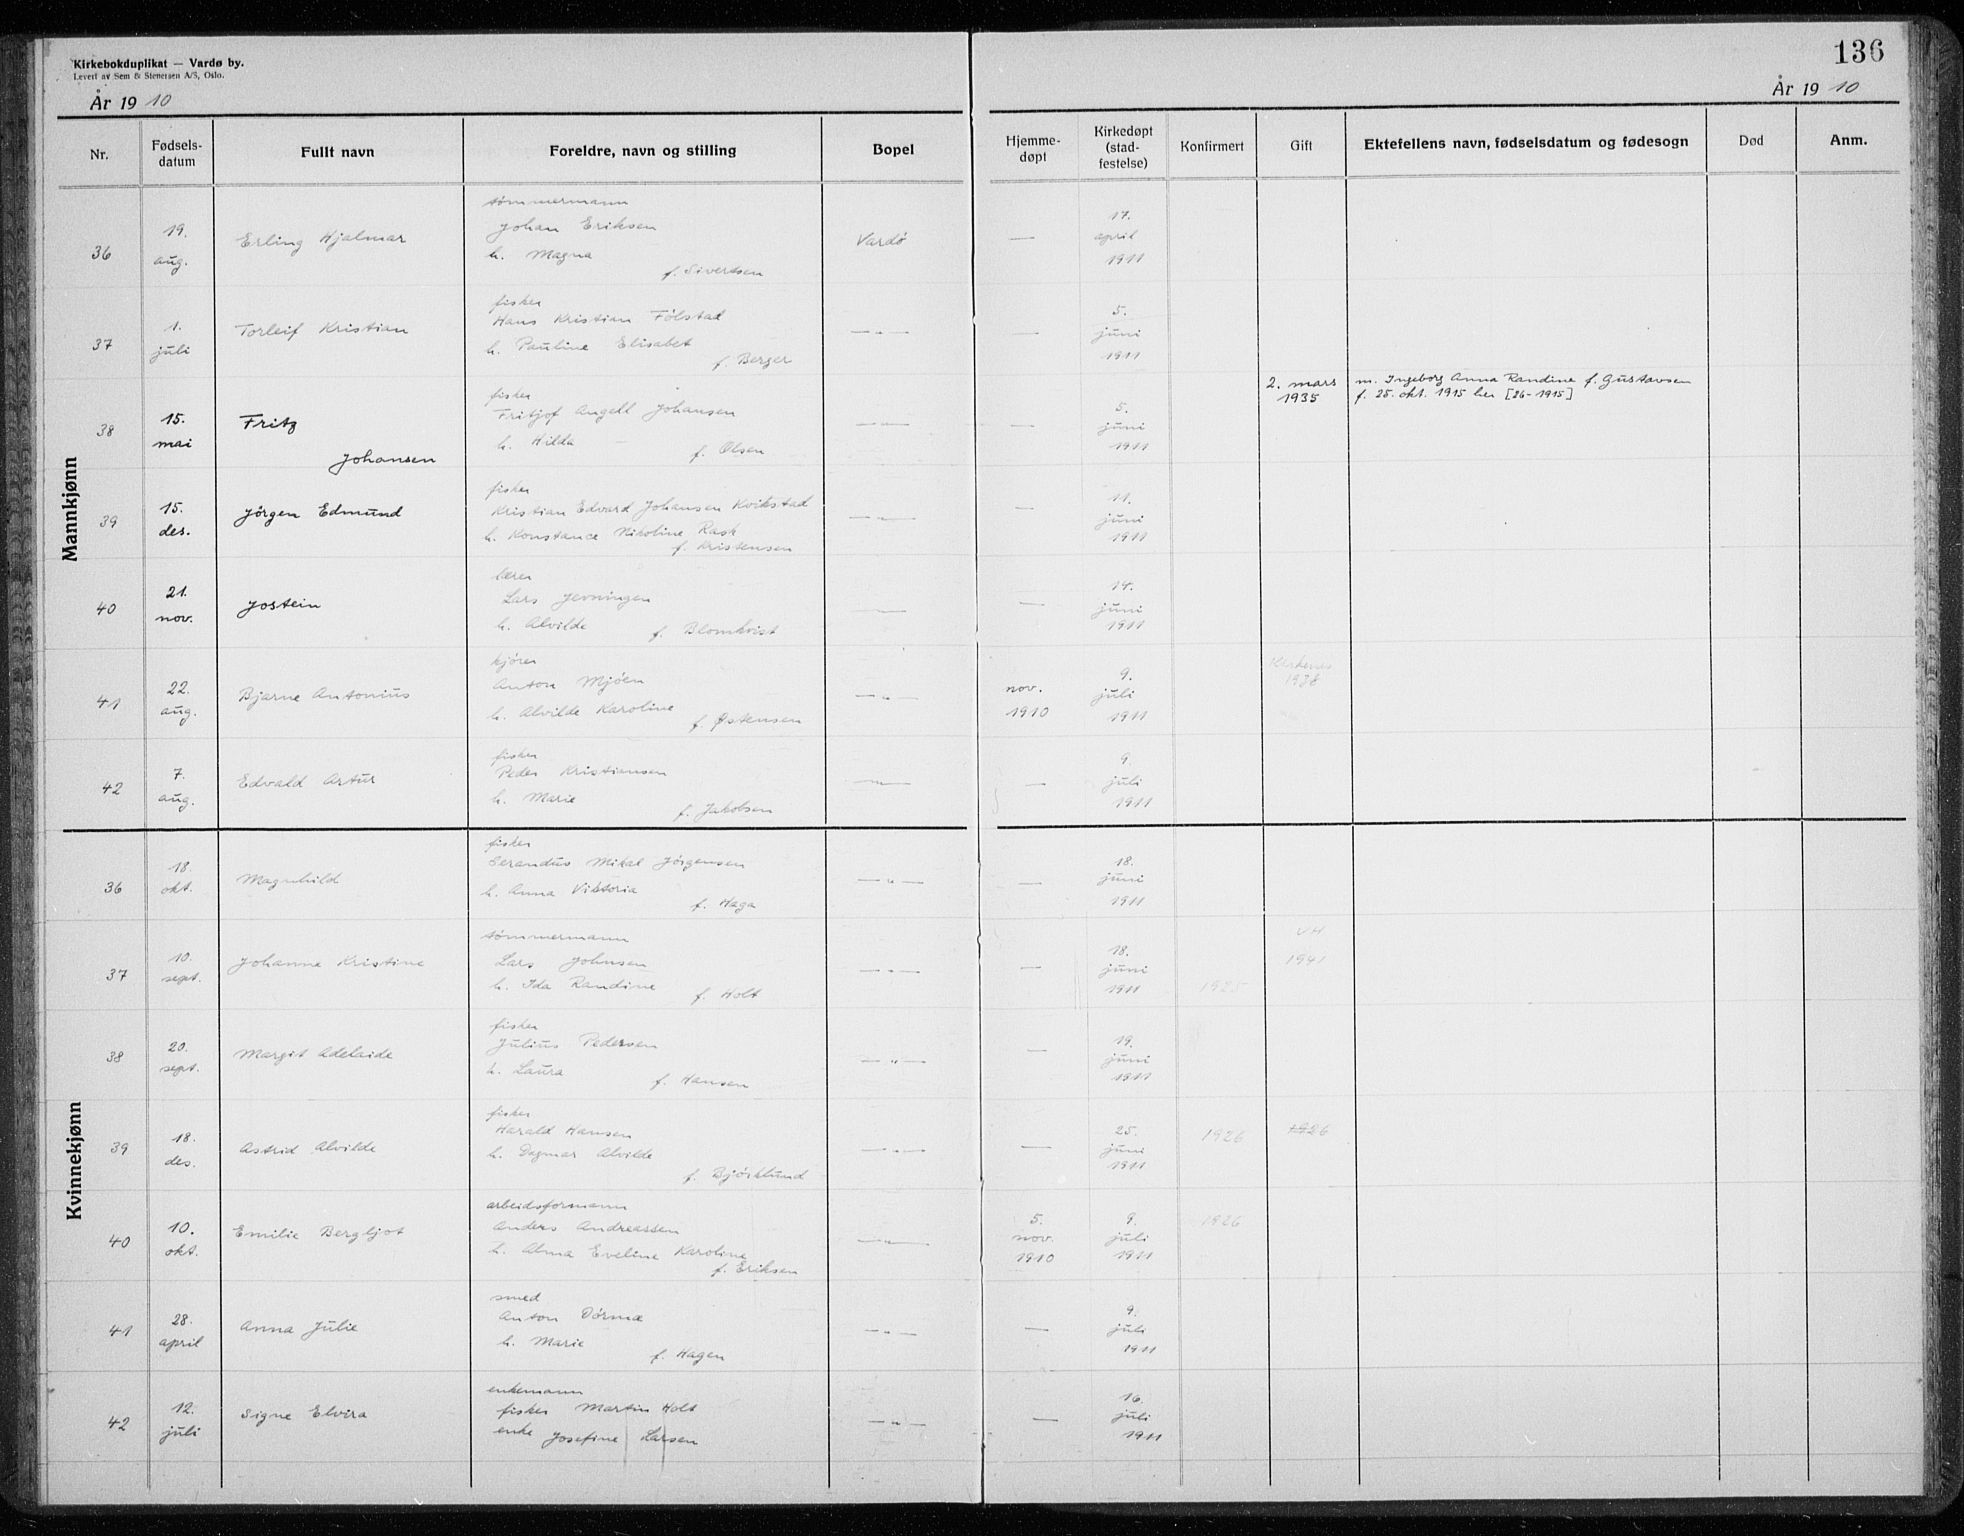 Kirkebokduplikat — Vardø by.
Levert av Sem & Stenersen A/S, Oslo.
136
År 19 10
År 19 10
Nr. Fødsels-datum Fullt navn Foreldre, navn og stilling Bopel Hjemme-døpt Kirkedøpt (stad-festelse) Konfirmert Gift Ektefellens navn, fødselsdatum og fødesogn Død Anm.
Mannkjønn
36 19. aug. Erling Hjalmar tømmermann Johan Eriksen h. Magna f. Sivertsen Vardø — 17. april 1911
37 1. juli Torleif Kristian fisker Hans Kristian Følstad h. Pauline Elisabet f. Berger —"— — 5. juni 1911
38 15. mai Fritz Johansen fisker Fritjof Angell Johansen h. Hilda — f. Olsen —"— — 5. juni 1911 2. mars 1935 m. Ingeborg Anna Randine f. Gustavsen f. 25. okt. 1915 her [26-1915]
39 15. des. Jörgen Edmund fisker Kristian Edvard Johansen Kvikstad h. Konstance Nikoline Rask f. Kristensen —"— — 11. juni 1911
40 21. nov. Jostein lærer Lars Jevningen h. Alvilde f. Blomkvist —"— — 14. juni 1911
41 22. aug. Bjarne Antonius kjører Anton Mjöen h. Alvilde Karoline f. Østensen —"— nov. 1910 9. juli 1911 Kirkenes 1938
42 7. aug. Edvald Artur fisker Peder Kristiansen h. Marie f. Jakobsen —"— — 9. juli 1911
Kvinnekjønn
36 18. okt. Magnhild fisker Serandus Mikal Jörgensen h. Anna Viktoria f. Haga —"— — 18. juni 1911
37 10. sept. Johanne Kristine tømmermann Lars Johnsen h. Ida Randine f. Holt —"— — 18. juni 1911 1925 1941
38 20. sept. Margit Adelaide fisker Julius Pedersen h. Laura f. Hansen —"— — 19. juni 1911
39 18. des. Astrid Alvilde fisker Harald Hansen h. Dagmar Alvilde f. Björklund —"— — 25. juni 1911 1926 1926
40 10. okt. Emilie Bergljot arbeidsformann Anders Andreassen h. Alma Eveline Karoline f. Eriksen —"— 5. nov. 1910 9. juli 1911 1926
41 28. april Anna Julie smed Anton Dørmæ h. Marie f. Hagen —"— — 9. juli 1911
42 12. juli Signe Elvira enkemann fisker Martin Holt enke Josefine Larsen —"— — 16. juli 1911